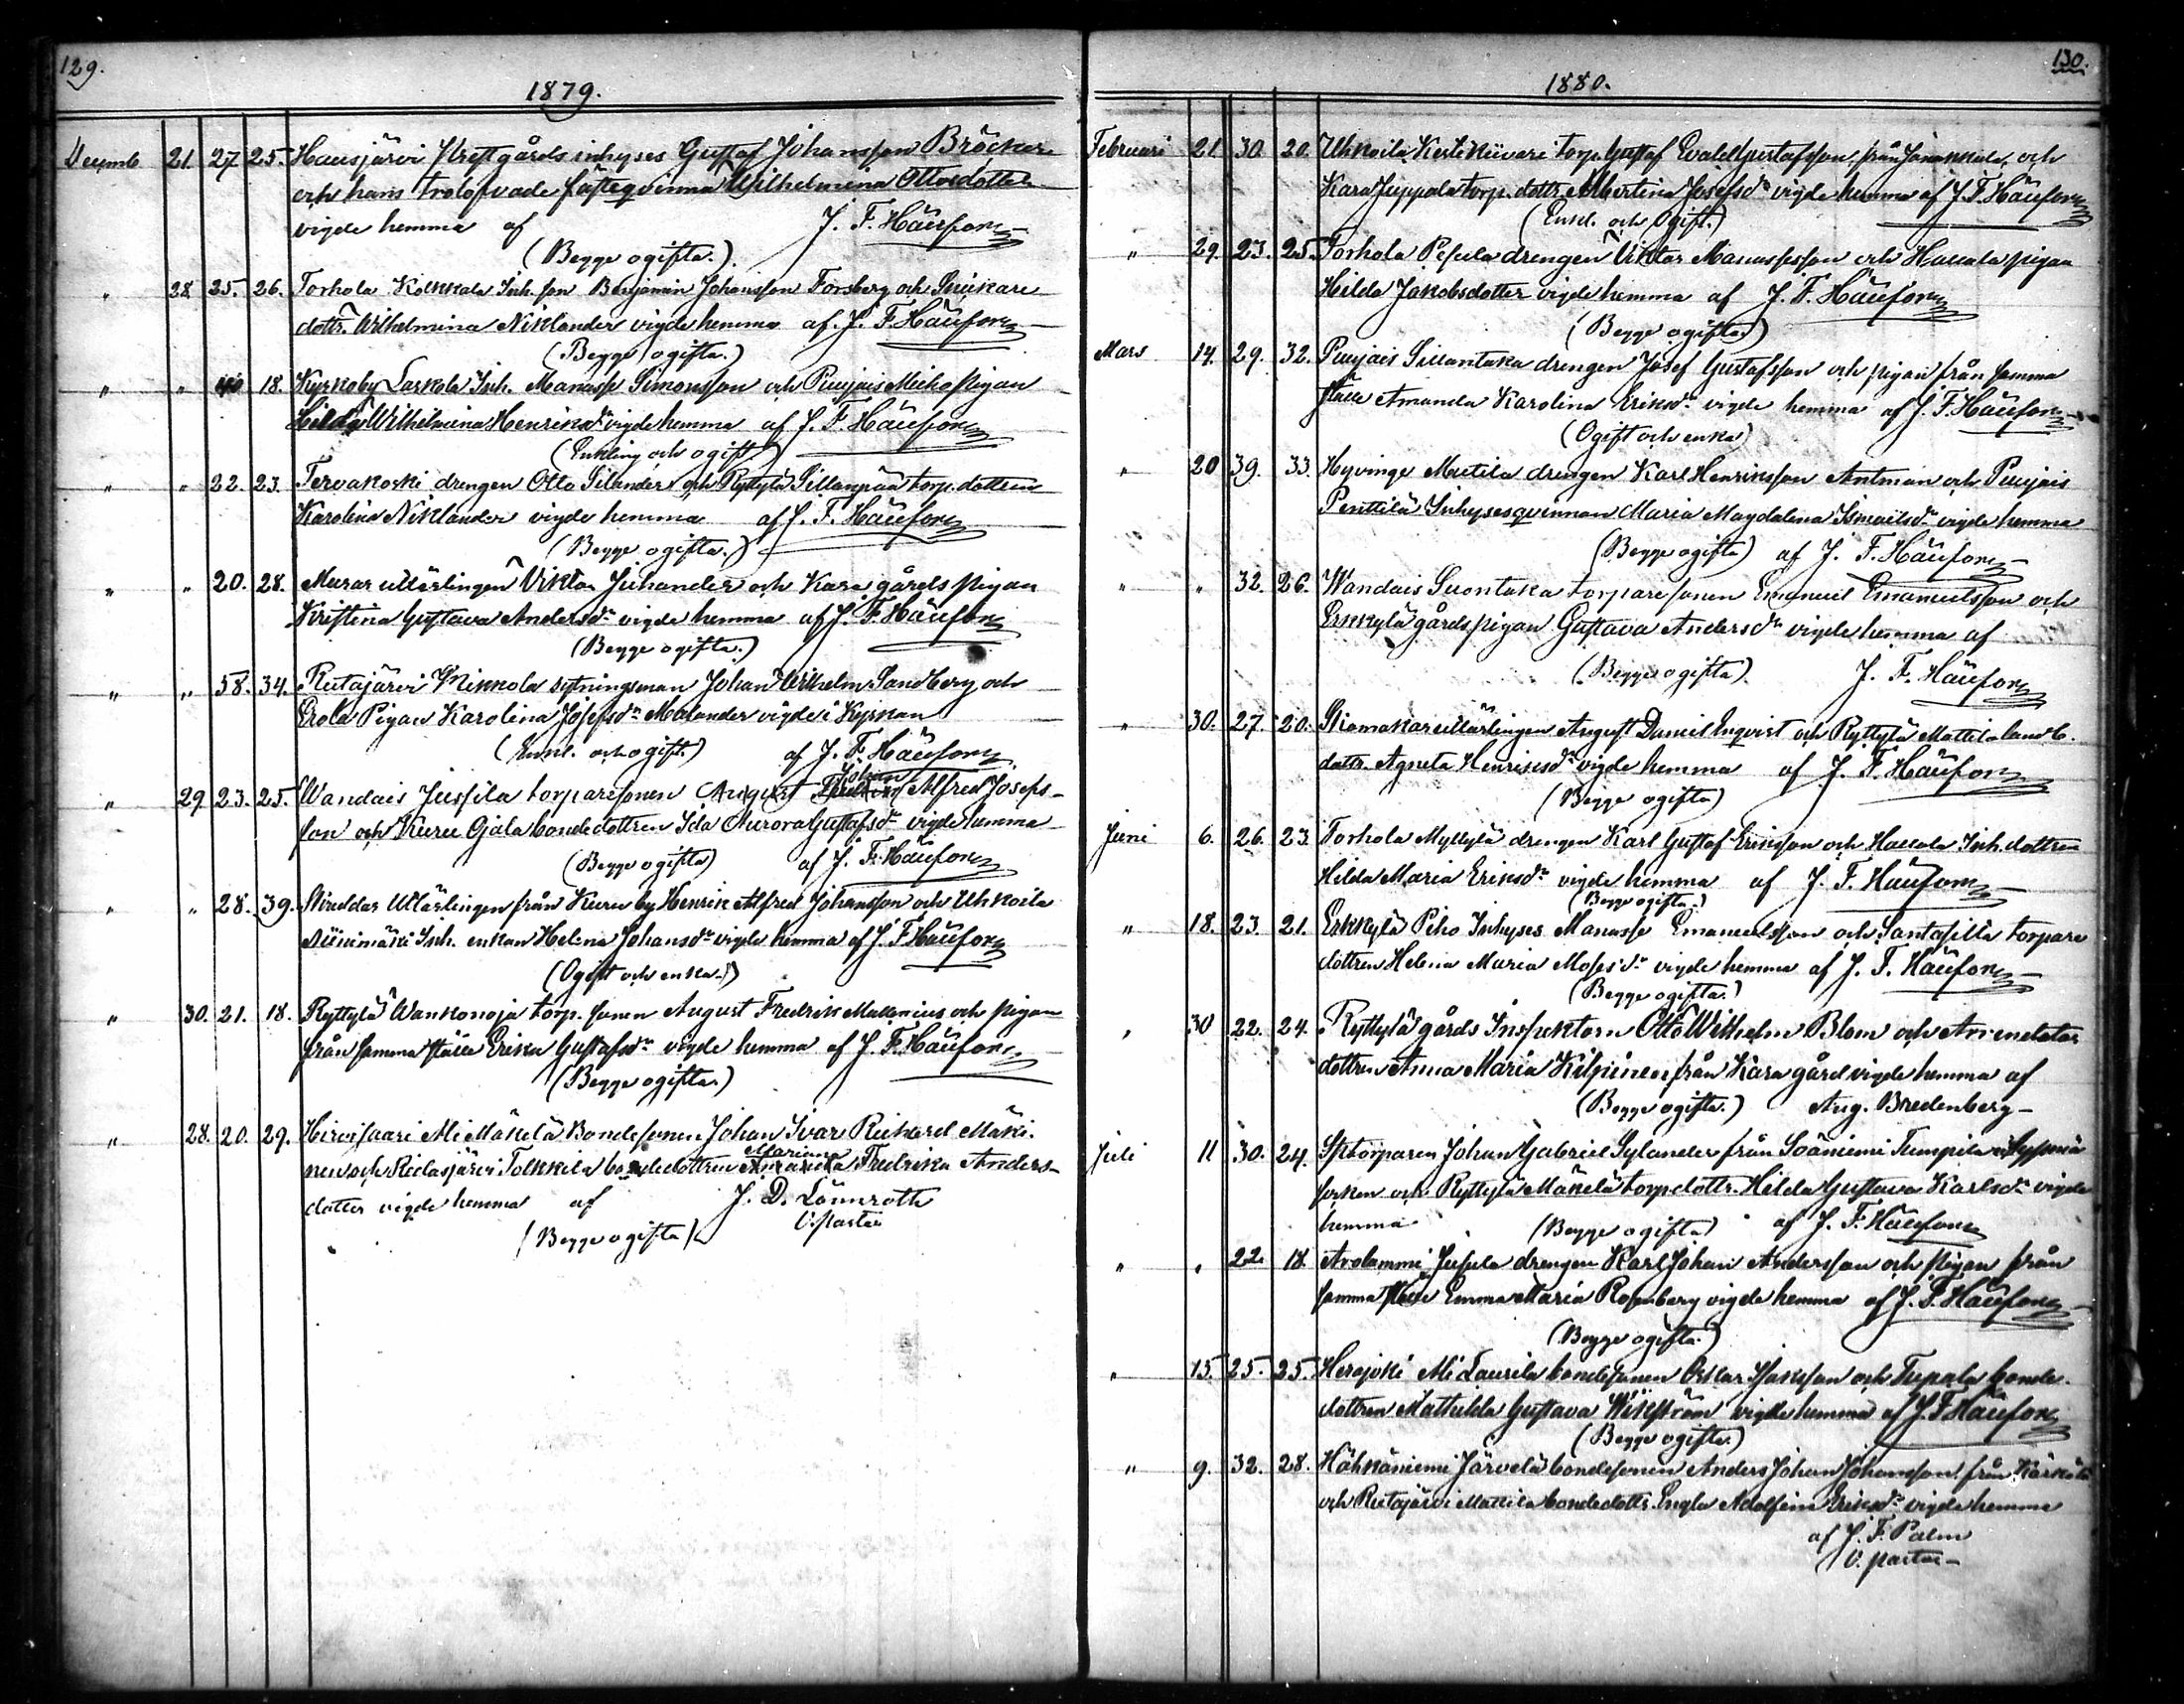 129.
1879.
Decemb 21. 27 25. Hausjärvi Prestgårds inhyses Gustaf Johansson Bröcker
och hans trolofvade fästeqvinna Wilhelmina Ottosdotter
vigde hemma af J. F. Häufors
(Begge ogifta.)
" 28. 25. 26. Torhola Kolkkala Inh. son Benjamin Johansson Forsberg och Snickare
dottr. Wilhelmina Niklander vigde hemma af J. F. Häufors
(Begge ogifta.)
" " 40 18. Kyrkoby Laskola Inh. Manasse Simonsson och Puujais Mieho pigan
Hilda Wilhelmina Henriksdr vigde hemma af J. F. Häufors
(Enkling och ogift)
" " 22. 23. Tervakoski drengen Otto Silander och Ryttylä Sillanpää torp. dottren
Karolina Niklander vigde hemma af J. F. Häufors
(Begge ogifta.)
" " 20. 28. Murar utlärlingen Viktor Juhander och Kara gårds pigan
Kristina Gustava Andersdr vigde hemma af J. F. Häufors
(Begge ogifta.)
" " 58. 34. Rutajärvi Mikkola sytningsman Johan Wilhelm Sandberg och
Erola Pigan Karolina Josefsdr Malander vigde i Kyrkan
(Enkl. och ogift) af J. F. Häufors
Johan
" 29 23. 25. Wandais Jussila torparesonen August Alfred Josefs-
son och Kuru Ojala bondedottren Ida Aurora Gustafsdr vigde hemma
(Begge ogifta) af J. F. Häufors
" " 28. 39. Skreddar Utlärlingen från Kuru by Henrik Alfred Johansson och Uhkoila
Niinimäki Inh. enkan Helena Johansdr vigde hemma af J. F. Häufors
(Ogift och enka.)
" 30. 21. 18. Ryttylä Wankonoja torp. sonen August Fredrik Mallenius och pigan
från samma ställe Erika Gustafsdr vigde hemma af J. F. Häufors
(Begge ogifta)
" 28. 20. 29. Hirvisaari Ali Mäkelä Bondesonen Johan Ivar Rickard Mäki-
Mariana
nen och Ridasjärvi Tolkkila bondedottren Fredrika Anders-
dotter vigde hemma af J. D. Lönnroth
(Begge ogifta) V. pastor
130.
1880.
Februari 21 30. 20. Uhkoila Kestikiivari torp. Gustaf Evald Gustafsson, från Janakkala, och
Kara Juppala torp. dottr. Albertina Josefsdr vigde hemma af J. F. Häufors
(Enkl. och Ogift.)
" 29. 23. 25. Torhola Pesula drengen Viktor Manassesson och Haccala pigan
Hilda Jakobsdotter vigde hemma af J. F. Häufors
(Begge ogifta)
Mars 14. 29. 32. Puujais Sillantaka drengen Josef Gustafsson och pigan från samma
ställe Amanda Karolina Eriksdr vigde hemma af J. F. Häufors
(Ogift och enka)
" 20 39. 33. Hyvinge Muttila drengen Karl Henriksson Antman och Puujais
Penttilä Inhysesqvinnan Maria Magdalena Ismailsdr vigde hemma
(Begge ogifta) af J. F. Häufors
" " 32. 26. Wandais Suontaka torparesonen Emanuel Emanuelsson och
Erkkylä gårds pigan Gustava Andersdr vigde hemma af
(Begge ogifta) J. F. Häufors
" 30. 27. 20. Skomakareutlärlingen August Daniel Enqvist och Ryttylä Mattila landb.
dottr. Agneta Henriksdr vigde hemma af J. F. Häufors
(Begge ogifta)
Juni 6. 26. 23. Torhola Myllylä drengen Karl Gustaf Eriksson och Haccala Inh. dottren
Hilda Maria Eriksdr vigde hemma af J. F. Häufors
(Begge ogifta.)
" 18. 23. 21. Erkkylä Piho Inhyses Manasse Emanuelsson och Santasilla torpare
dottren Helena Maria Mosesdr vigde hemma af J. F. Häufors
(Begge ogifta.)
" 30 22. 24. Ryttylä gårds Inspektorn Otto Wilhelm Blom och Arrendator
dottren Anna Maria Kilpinen från Kara gård vigde hemma af
(Begge ogifta.) Aug. Bredenberg
Juli 11 30. 24. Johan Gabriel Sylander från Soäniemi
socken och Ryttylä Mäkelä torp. dottr. Hilda Gustava Karlsdr vigde
hemma (Begge ogifta) af J. F. Häufors
" " 22 18. Arolammi Jussila drengen Karl Johan Andersson och pigan från
samma ställe Emma Maria Rosenberg vigde hemma af J. F. Häufors
(Begge ogifta.)
" 15. 25. 25. Herajoki Ali Laurila bondesonen Oskar Isaksson och Tupala bonde-
dottren Mathilda Gustava Wikström vigde hemma af J. F. Häufors
(Begge ogifta.)
" 9. 32. 28. Hähkäniemi Järvelä bondesonen Anders Johan Johansson från Kärkölä
och Rutajärvi Mattila bondedottr. Engla Adolfina Eriksdr vigde hemma
af J. F. Palm
V. pastor